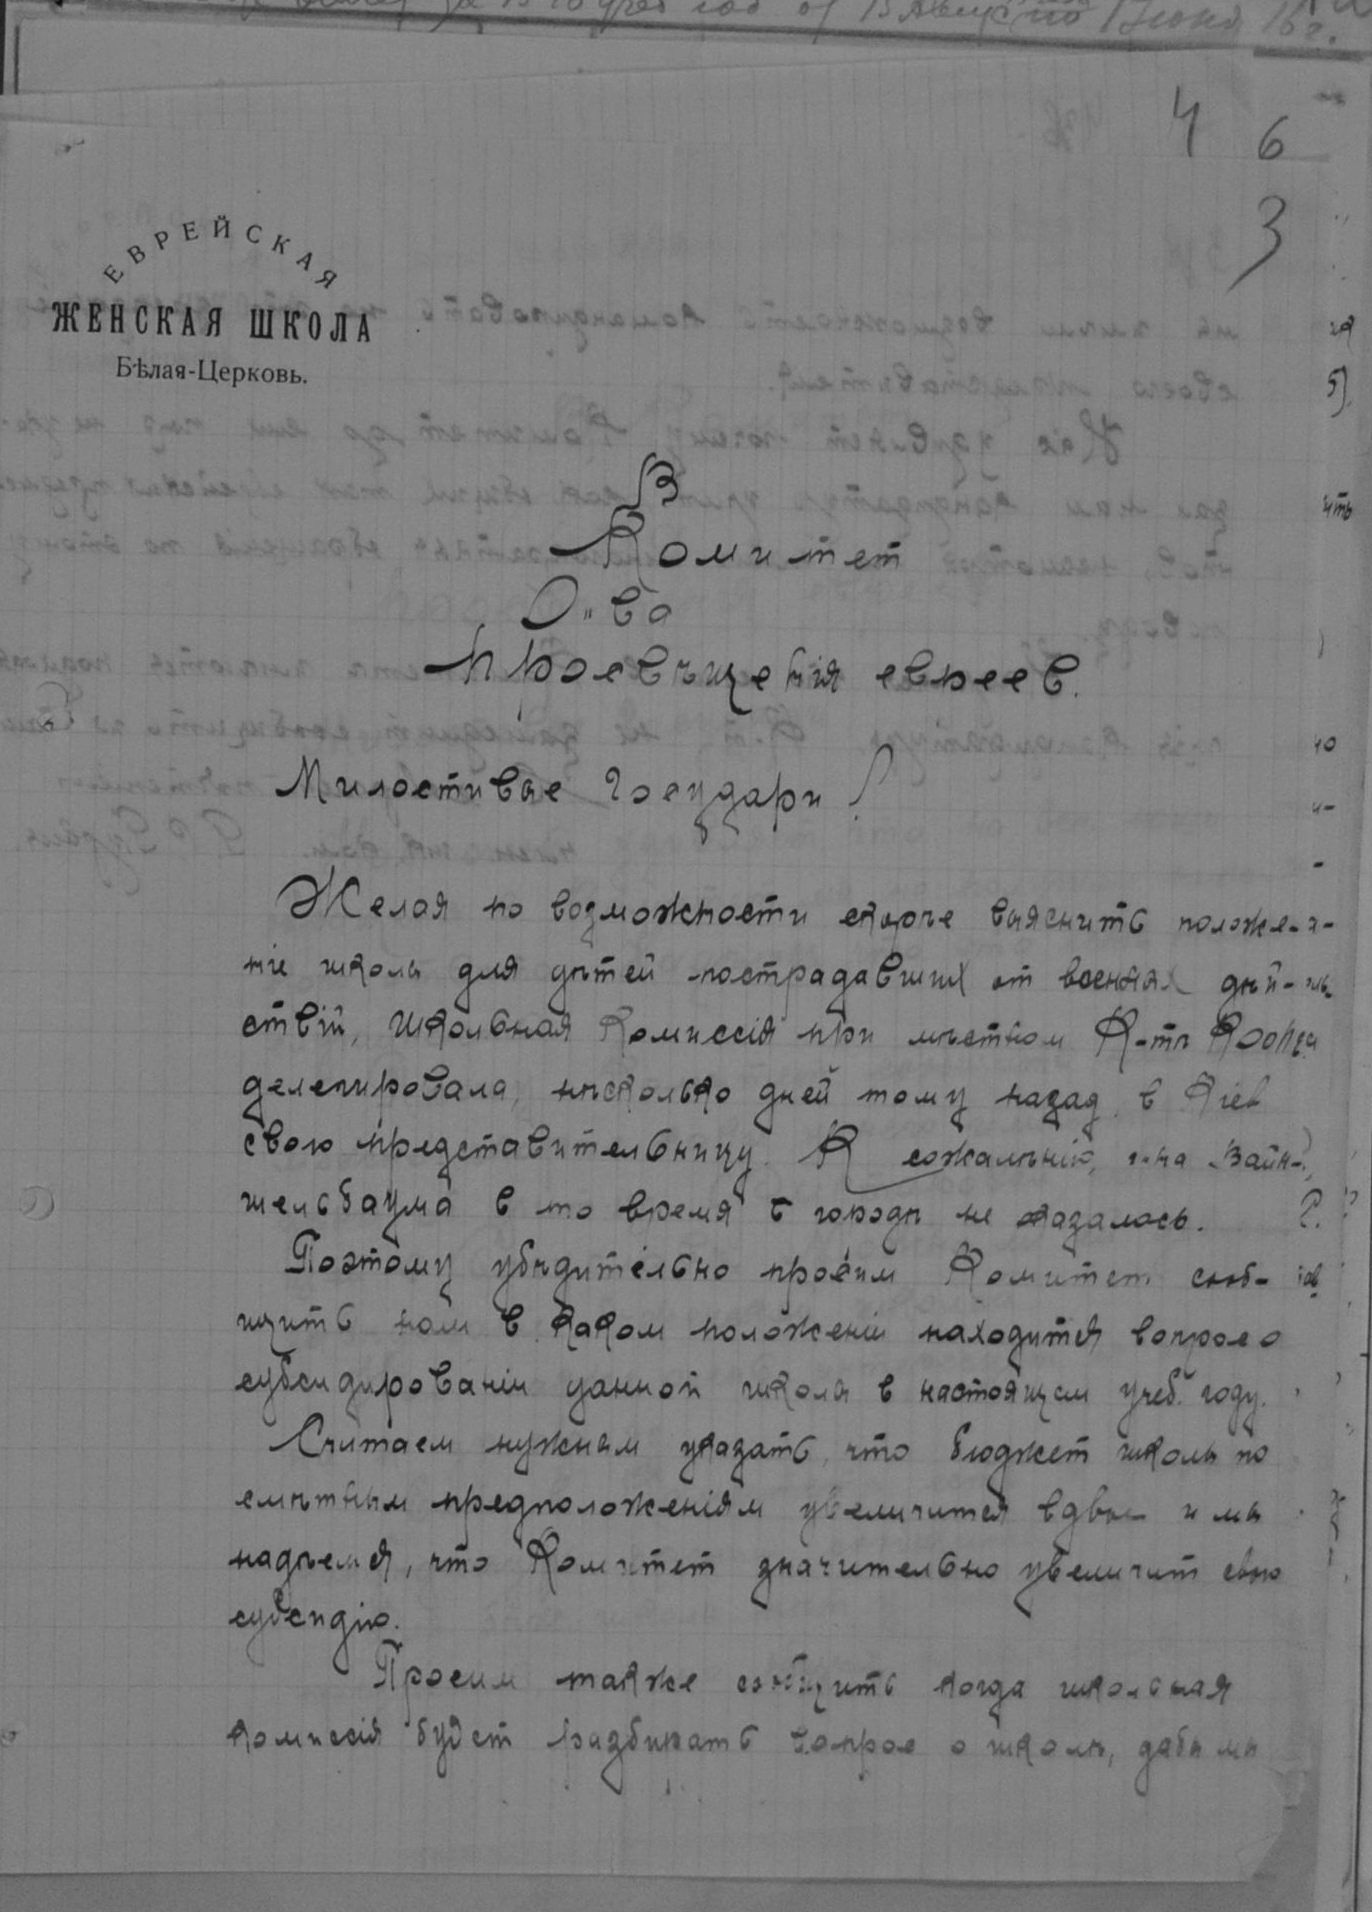 4 6
3
ЕВРЕЙСКАЯ
ЖЕНСКАЯ ШКОЛА
Бѣлая-Церковь.
В
Комитет
О-ва
просвѣщенія евреев.
Милостивые Государи!
Желая по возможности скорѣе выяснить положе-
ніе школы для дѣтей пострадавших от военных дѣй-
ствій, Школьная Комиссія при мѣстном К-тѣ
делегировала, нѣсколько дней тому назад в Кіев
свою представительницу. К сожалѣнію, г-на Вайн-
шельбаума в то время в городѣ не оказалось.
Поэтому убѣдительно просим Комитет сооб-
щить нам в каком положеніи находится вопрос о
субсидированіи данной школы в настоящем учеб. году.
Считаем нужным указать, что бюджет школы по
смѣтным предположеніям увеличится вдвое и мы
надѣемся, что Комитет значительно увеличит свою
субсидію.
Просим также сообщить когда школьная
комиссія будет разбирать вопрос о школѣ, дабы мы